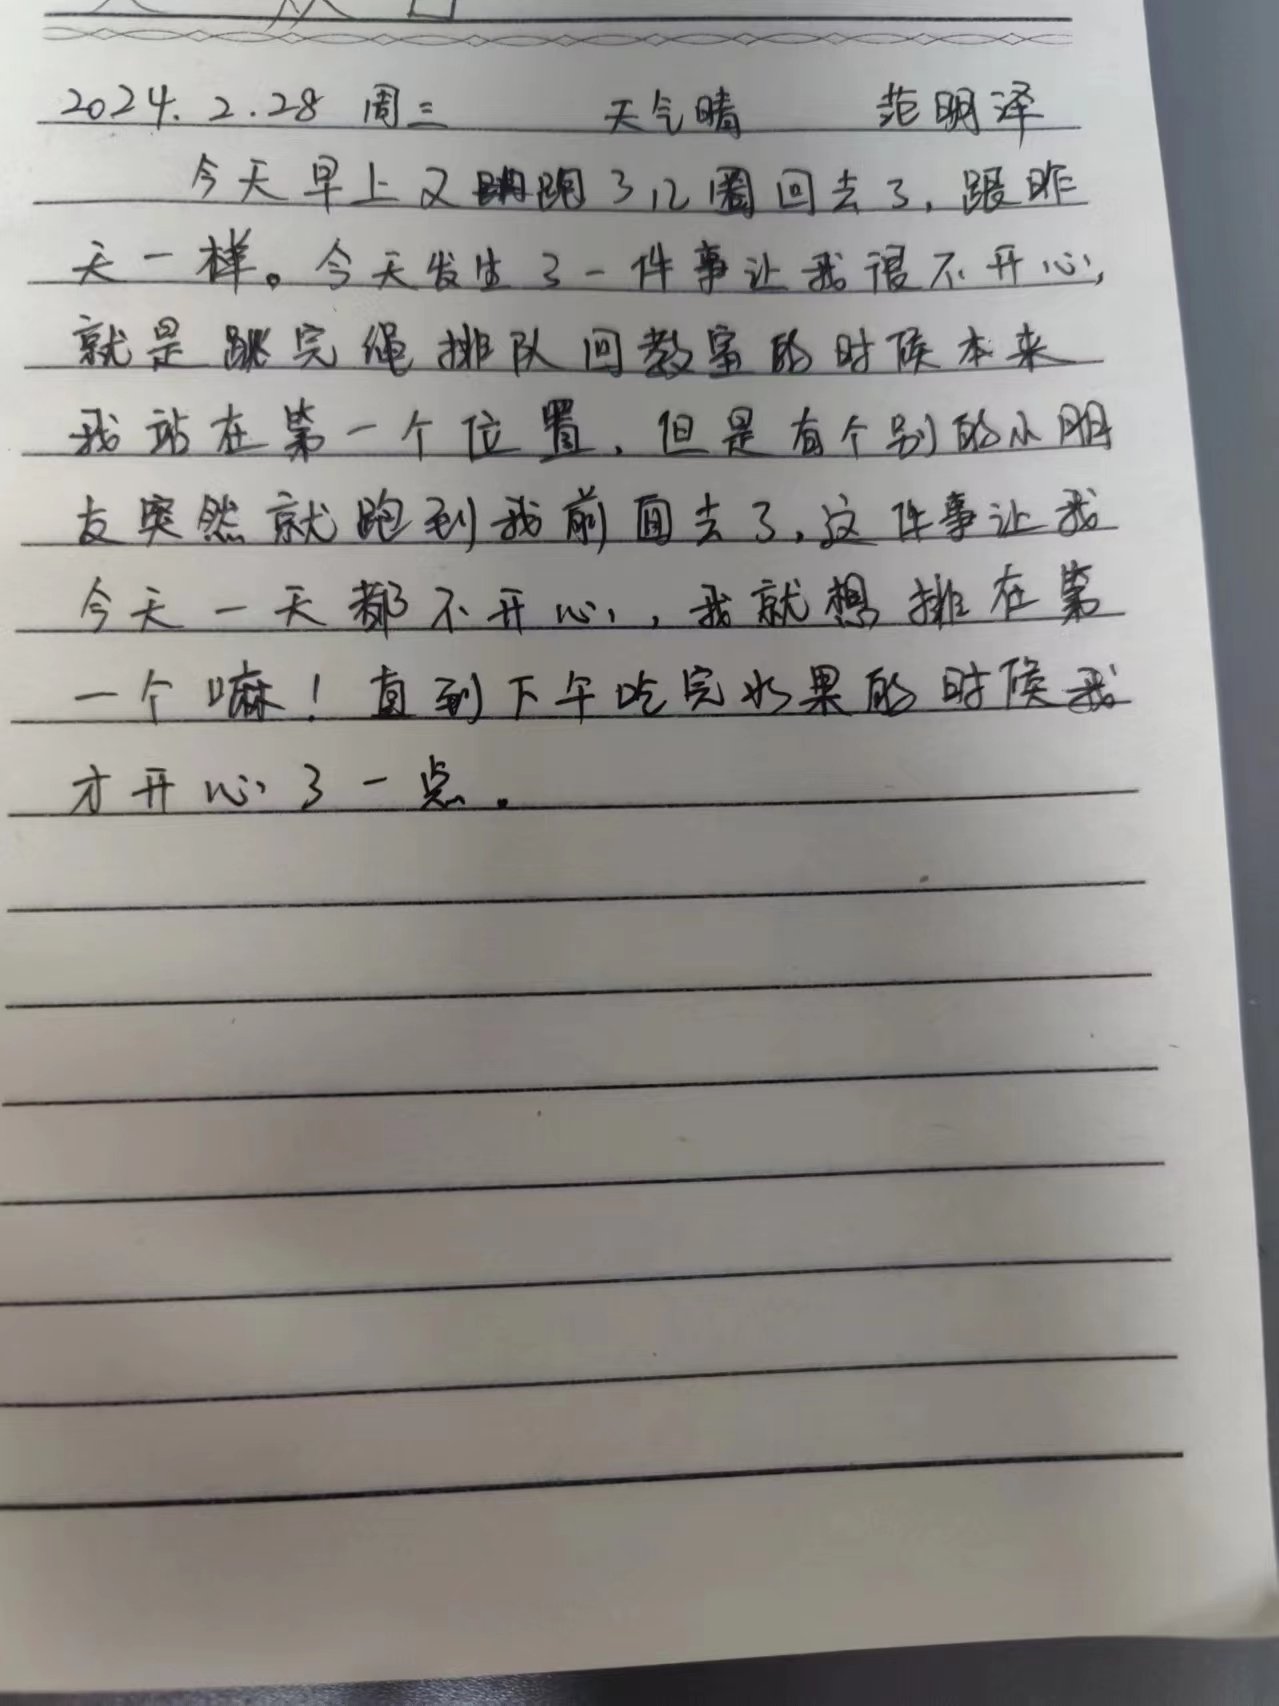 2024.2.28 周三 天气晴 范明泽
今天早上又跑了几圈回去了,跟昨
天一样。今天发生了一件事让我很不开心,
就是跳完绳排队回教室的时候本来
我站在第一个位置,但是有个别的小朋
友突然就跑到我前面去了,这件事让我
今天一天都不开心,我就想排在第
一个嘛!直到下午吃完水果的时候我
才开心了一点。